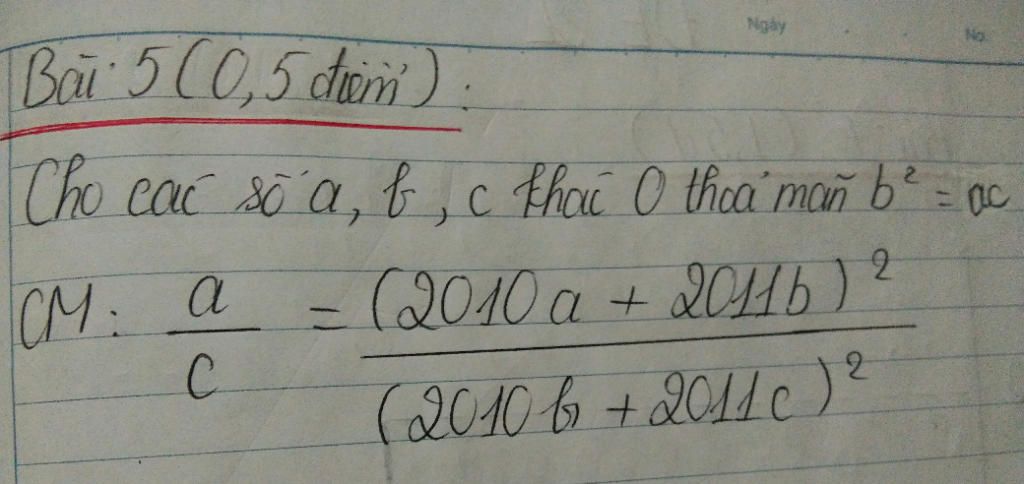 Ngày
No.
Bài 5 (0,5 điểm) :
Cho các số a, b, c khác 0 thoả mãn b² = ac
CM : a/c = (2010a + 2011b)² / (2010b + 2011c)²